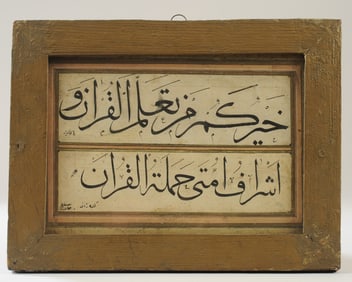 خيركم من تعلم القرآن و
اشراف امتى حملة القرآن